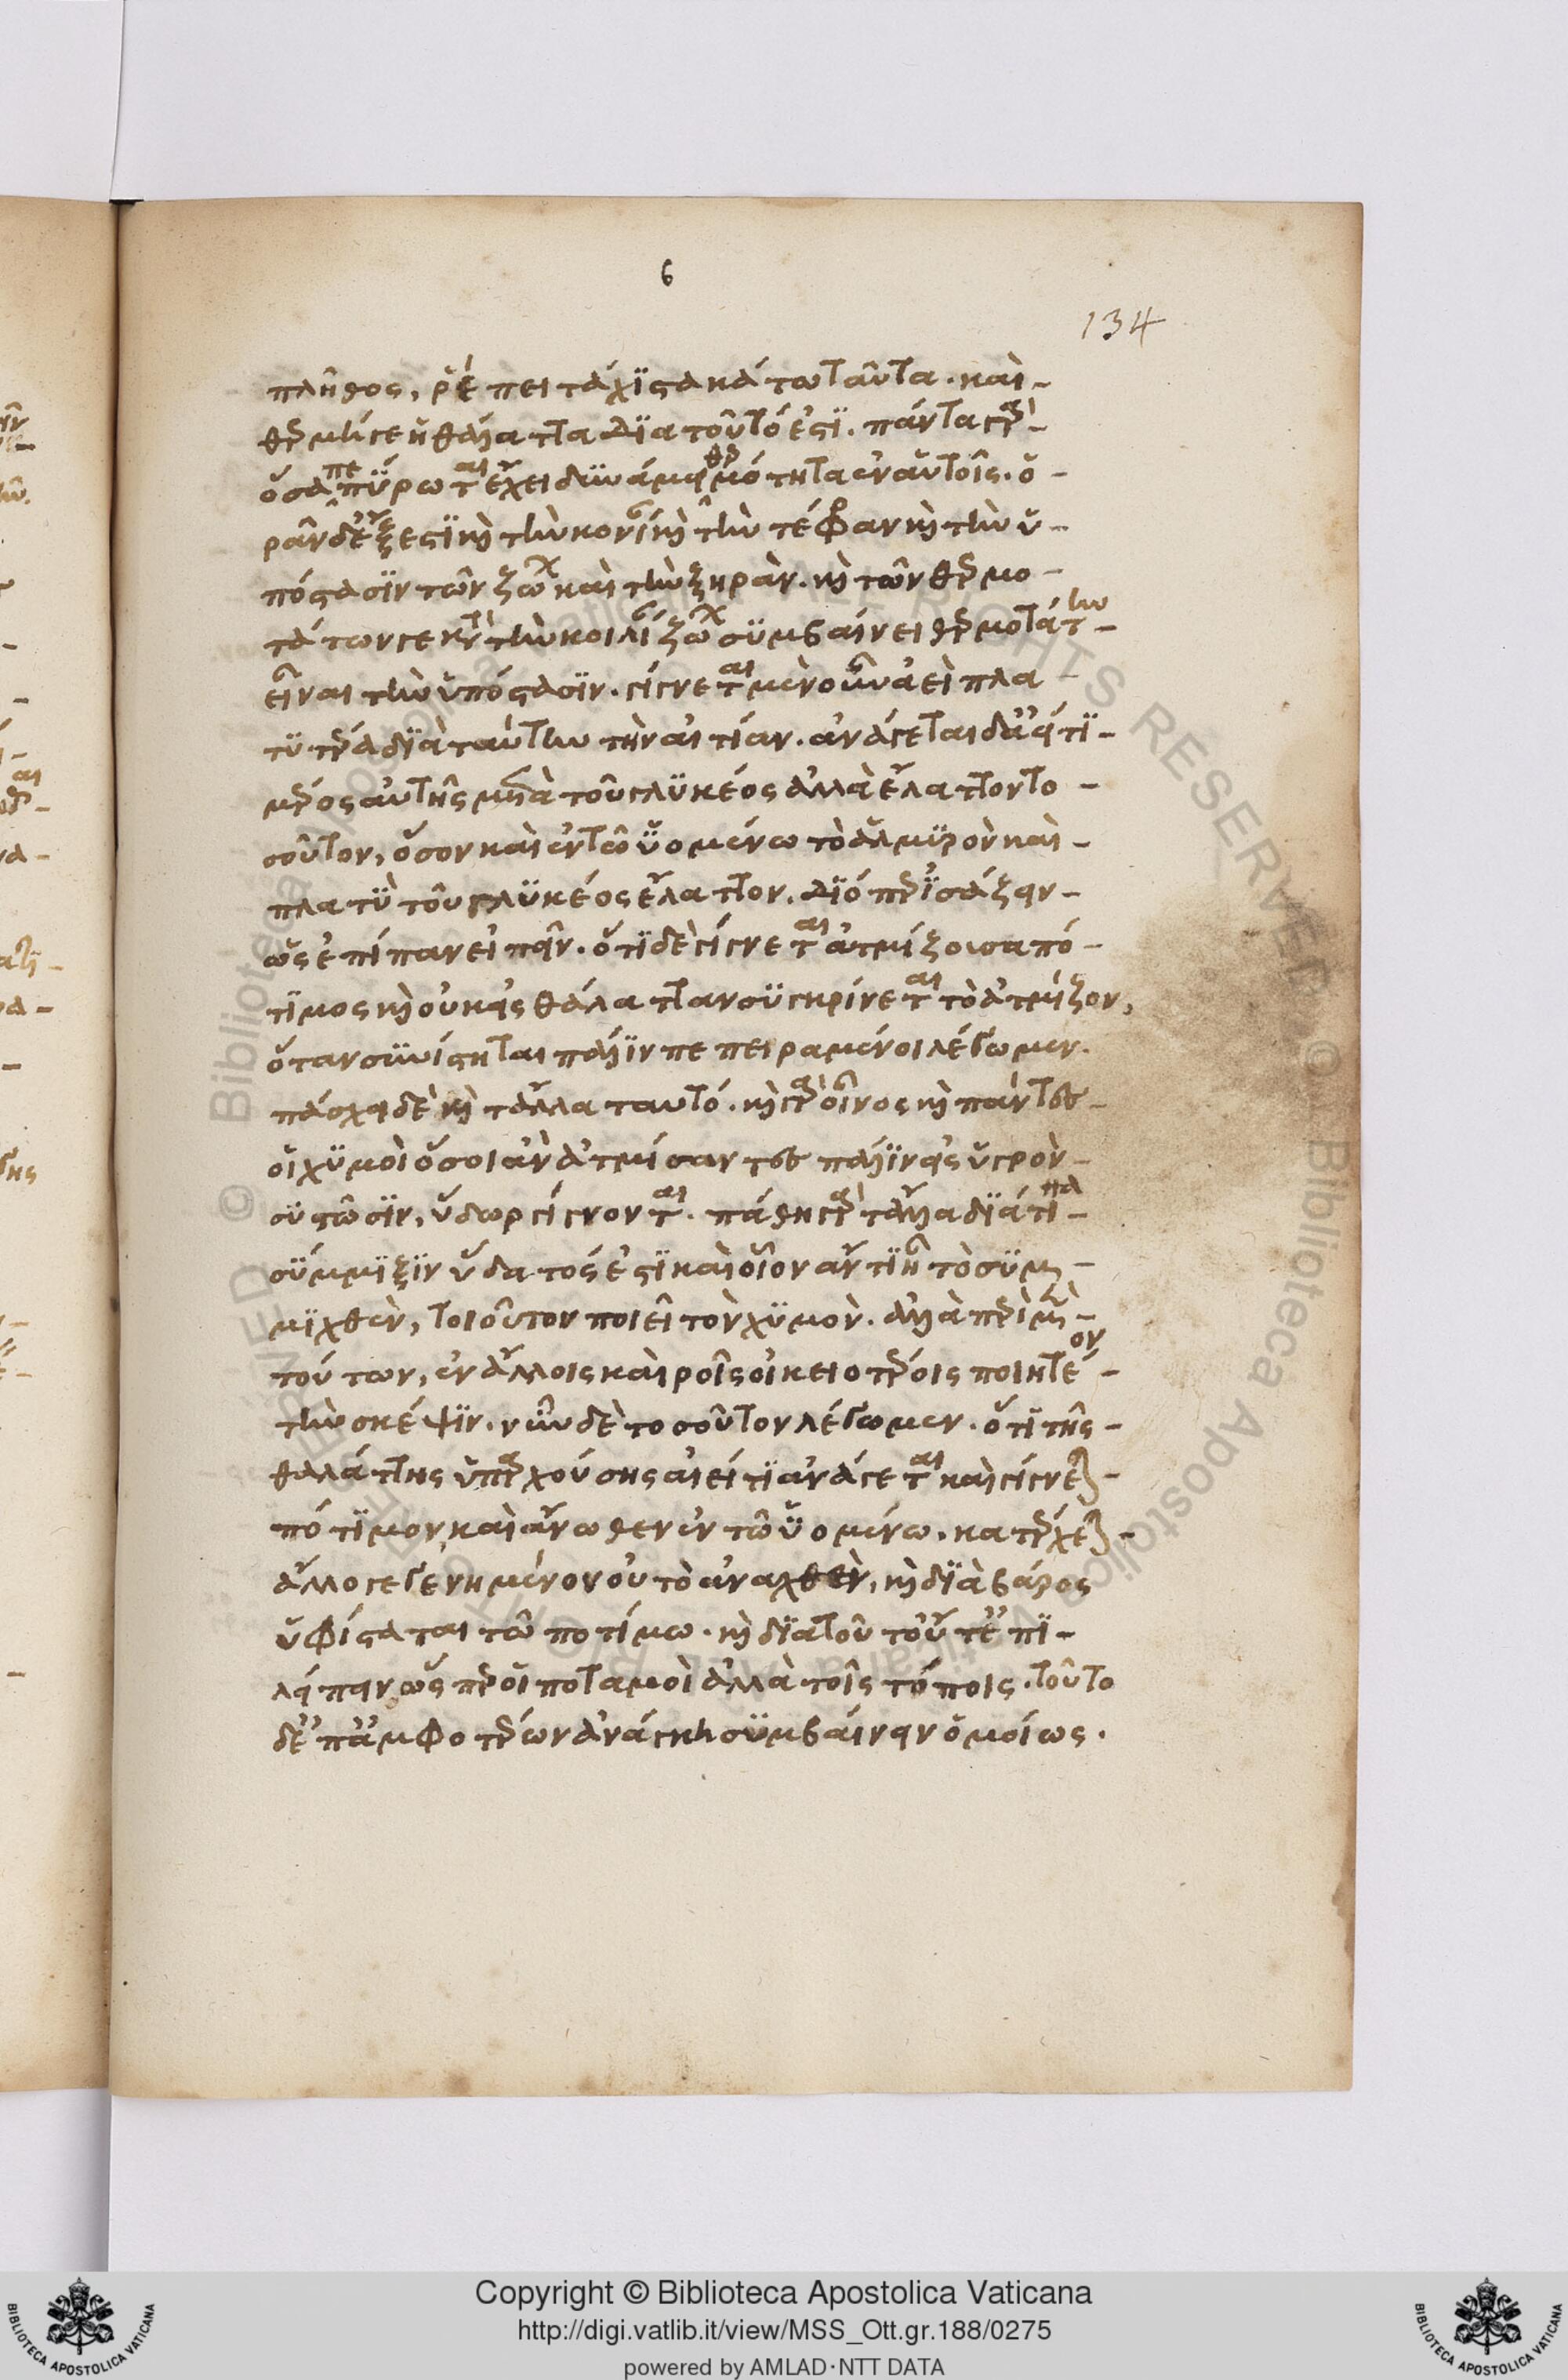 πλῆθος, ῥέπει τάχϊστα κάτω ταῦτα. καὶ -
θερμή γε ἡ θάλαττα διὰ τοῦτό ἐστϊ. πάντα γὰρ -
ὅσα πεπύρωται ἔχει δυνάμει θερμότητα ἐν αὐτοῖς. ὁ -
ρᾶν δ' ἔξεστϊ καὶ τὴν κονίαν καὶ τὴν τέφραν καὶ τὴν ὑ -
πόστασϊν τῶν ζώων καὶ τὴν ξηρὰν. καὶ τῶν θερμο -
τάτων γε κατὰ τὴν κοιλίαν ζώων συμβαίνει θερμοτάτην -
εἶναι τὴν ὑπόστασϊν. γίγνεται μὲν οὖν ἀεὶ πλα -
τϋτέρα δϊὰ ταύτην τὴν αἰτίαν. ἀνάγεται δ' ἀεί τϊ -
μέρος αὐτῆς μετὰ τοῦ γλϋκέος ἀλλὰ ἔλαττον το -
σοῦτον, ὅσον καὶ ἐν τῶ ὑομένω τὸ ἁλμϋρὸν καὶ -
πλατϋ τοῦ γλϋκέος ἔλαττον. διόπερ ἰσάζειν -
ὡς ἐπίπαν εἰπεῖν. ὅτϊ δὲ γίγνεται ἀτμίζουσα πό -
τϊμος καὶ οὐκ εἰς θάλατταν συγκρίνεται τὸ ἀτμίζον,
ὅταν συνίστηται πάλϊν πεπειραμένοι λέγωμεν.
πάσχει δὲ καὶ τἄλλα ταυτό. καὶ γὰρ οἶνος καὶ πάντες -
οἱ χϋμοὶ ὅσοι ἂν ἀτμίσαντες πάλϊν εἰς ὑγρὸν -
συστῶσϊν, ὕδωρ γίγνονται. πάθη γὰρ τἄλλα δϊά τϊνα -
σύμμϊξϊν ὕδατός ἐστϊ καὶ οἷον ἄν τϊ ἦ τὸ σϋμ -
μϊχθὲν, τοιοῦτον ποιεῖ τὸν χϋμὸν. ἀλλὰ περὶ μὲν -
τούτων, ἐν ἄλλοις καὶροῖς οἰκειοτέροις ποιητέον -
τὴν σκέψϊν. νῦν δὲ τοσοῦτον λέγωμεν. ὅτϊ τῆς -
θαλάττης ὑπαρχούσης αἰεί τϊ ἀνάγεται καὶ γίγνεται -
πότϊμον καὶ ἄνωθεν ἐν τῶ ὑομένω. κατέρχεται -
ἄλλο γεγενημένον οὐ τὸ ἀναχθὲν, καὶ δϊὰ βάρος
ὑφίσταται τῶ ποτίμω. καὶ δϊὰ τοῦτο οὔτ' ἐπϊ -
λείπειν ὥσπερ οἱ ποταμοὶ ἀλλὰ τοῖς τόποις. τοῦτο
δ' ἐπ' ἀμφοτέρων ἀνάγκη σϋμβαίνειν ὁμοίως.
6
134
Copyright © Biblioteca Apostolica Vaticana
http://digi.vatlib.it/view/MSS_Ott.gr.188/0275
powered by AMLAD·NTT DATA
BIBLIOTECA APOSTOLICA VATICANA
BIBLIOTECA APOSTOLICA VATICANA